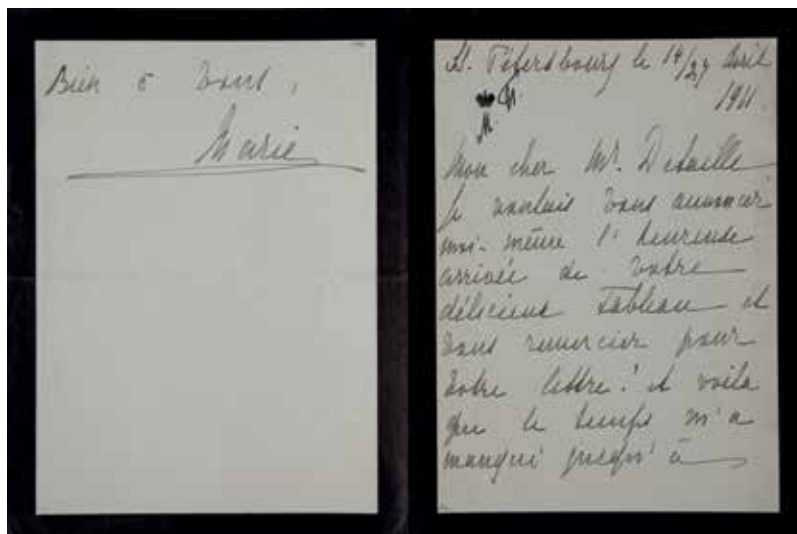 Bien à vous,
Marie
St. Pétersbourg le 14/27 Avril
1911.
Mon cher Mr. Detaille
Je voulais vous annoncer
moi-même l'heureuse
arrivée de votre
délicieux tableau et
vous remercier pour
votre lettre! et voilà
que le temps m'a
manqué jusqu'à